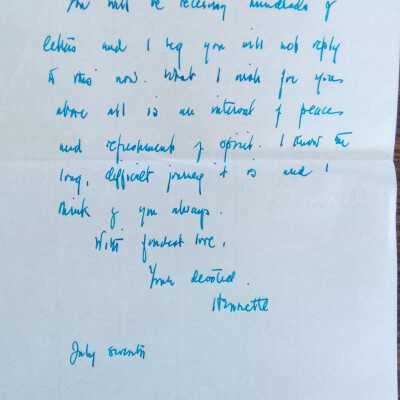 You will be receiving hundreds of
letters and I beg you will not reply
to this now. What I wish for you
above all is an interval of peace
and refreshment of spirit. I know the
long, difficult journey it is and I
think of you always.
With fondest love,
Your devoted
Henriette
July seventh